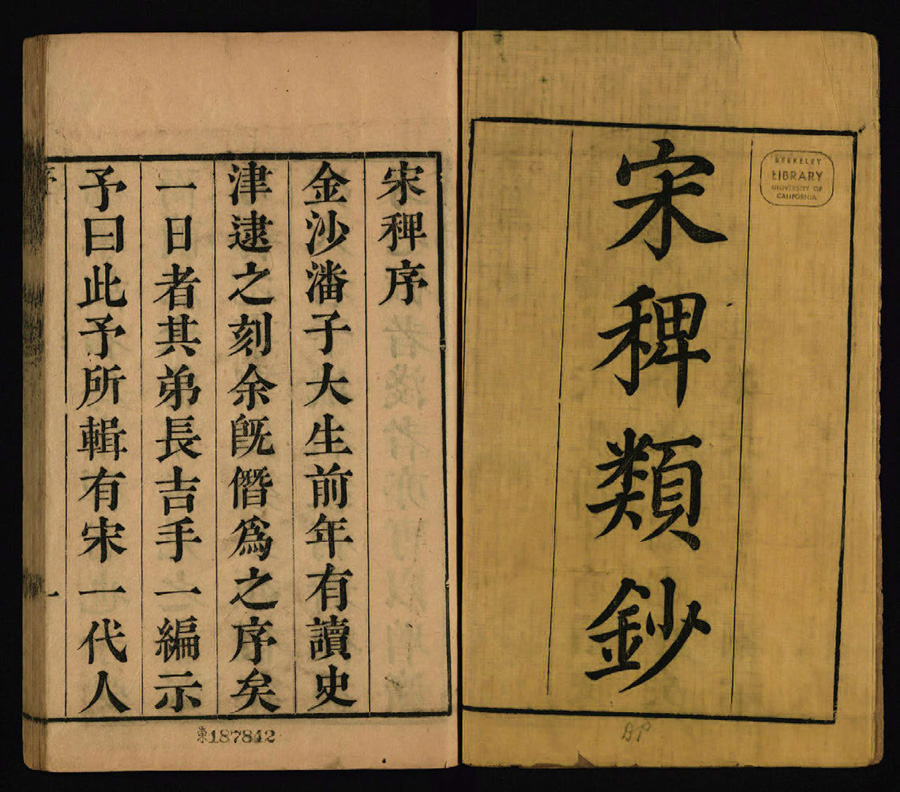 宋稗類鈔
BERKELEY
LIBRARY
UNIVERSITY OF
CALIFORNIA
宋稗序
金沙潘子大生前年有讀史
津逮之刻余旣僭爲之序矣
一日者其弟長吉手一編示
予曰此予所輯有宋一代人
序
一
東187842